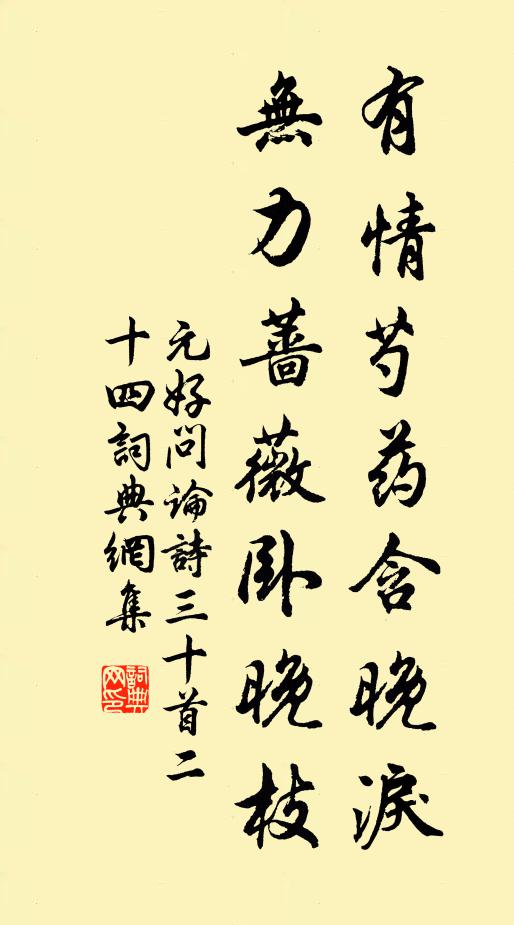 有情芍药含晚淚
無力薔薇卧晚枝
元好问論詩三十首二
十四詞典網集
詞典网印